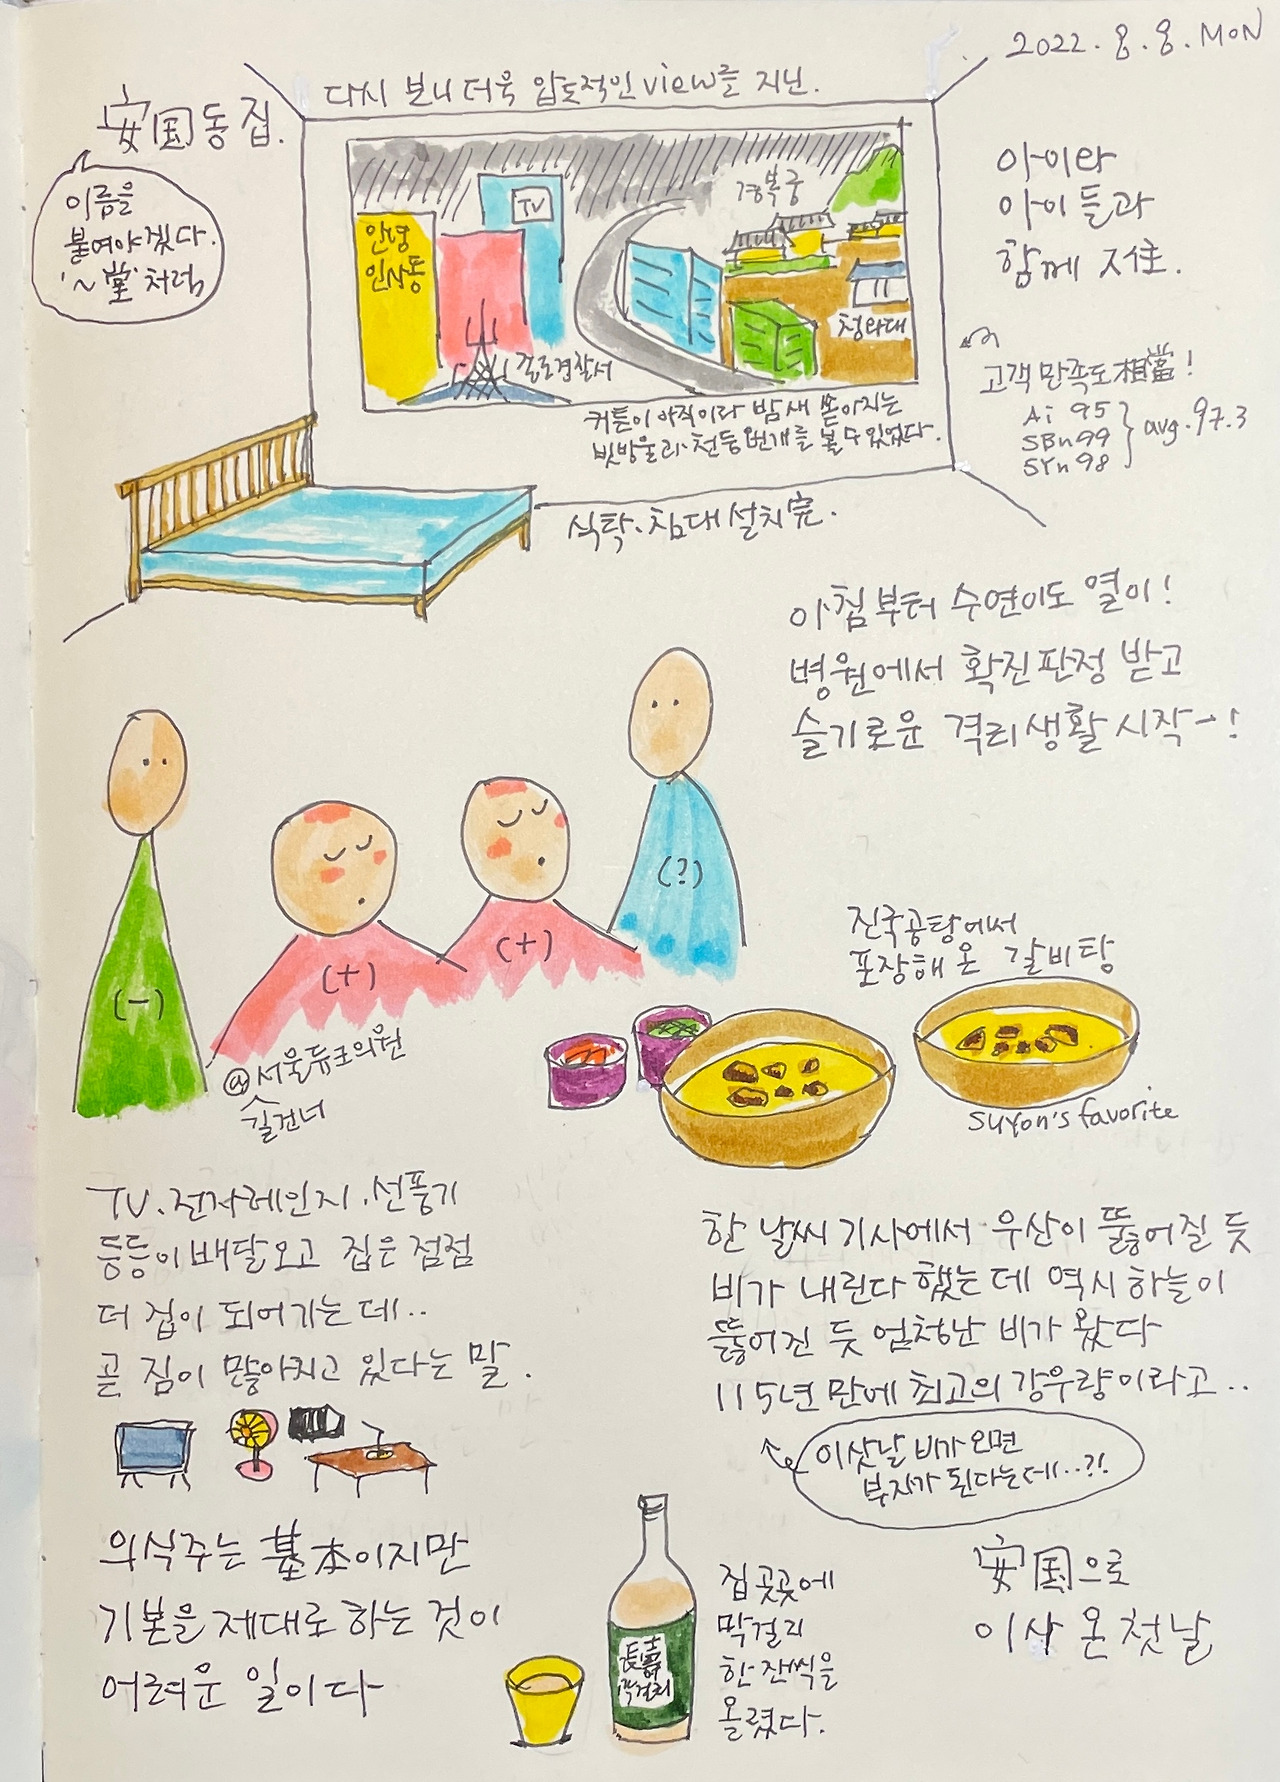 2022. 8. 8. MON
다시 보니 더욱 압도적인 view를 지닌.
安国동집.
이름을
붙여야겠다.
'~堂'처럼
TV
안녕
인사동
경복궁
청와대
종로경찰서
커튼이 아직이라 밤새 쏟아지는
빗방울과 천둥번개를 볼 수 있었다.
아이라
아이들과
함께 자住.
고객만족도 相當!
Ai 95
SBn 99
SYn 98
avg. 97.3
식탁. 침대 설치完.
아침부터 수연이도 열이!
병원에서 확진판정 받고
슬기로운 격리생활 시작-!
(-)
(+)
(+)
(?)
@서울듀오의원
길건너
진국곰탕에서
포장해 온 갈비탕
SUYon's favorite
TV. 전자레인지. 선풍기
등등이 배달오고 집은 점점
더 집이 되어가는데..
곧 짐이 많아지고 있다는 말.
한 날씨 기사에서 우산이 뚫어질 듯
비가 내린다 했는데 역시 하늘이
뚫어진 듯 엄청난 비가 왔다
115년 만에 최고의 강우량이라고..
이삿날 비가 오면
부자가 된다는데..?!
의식주는 基本이지만
기본을 제대로 하는 것이
어려운 일이다
長壽
막걸리
집 곳곳에
막걸리
한 잔씩을
올렸다.
安国으로
이사 온 첫날